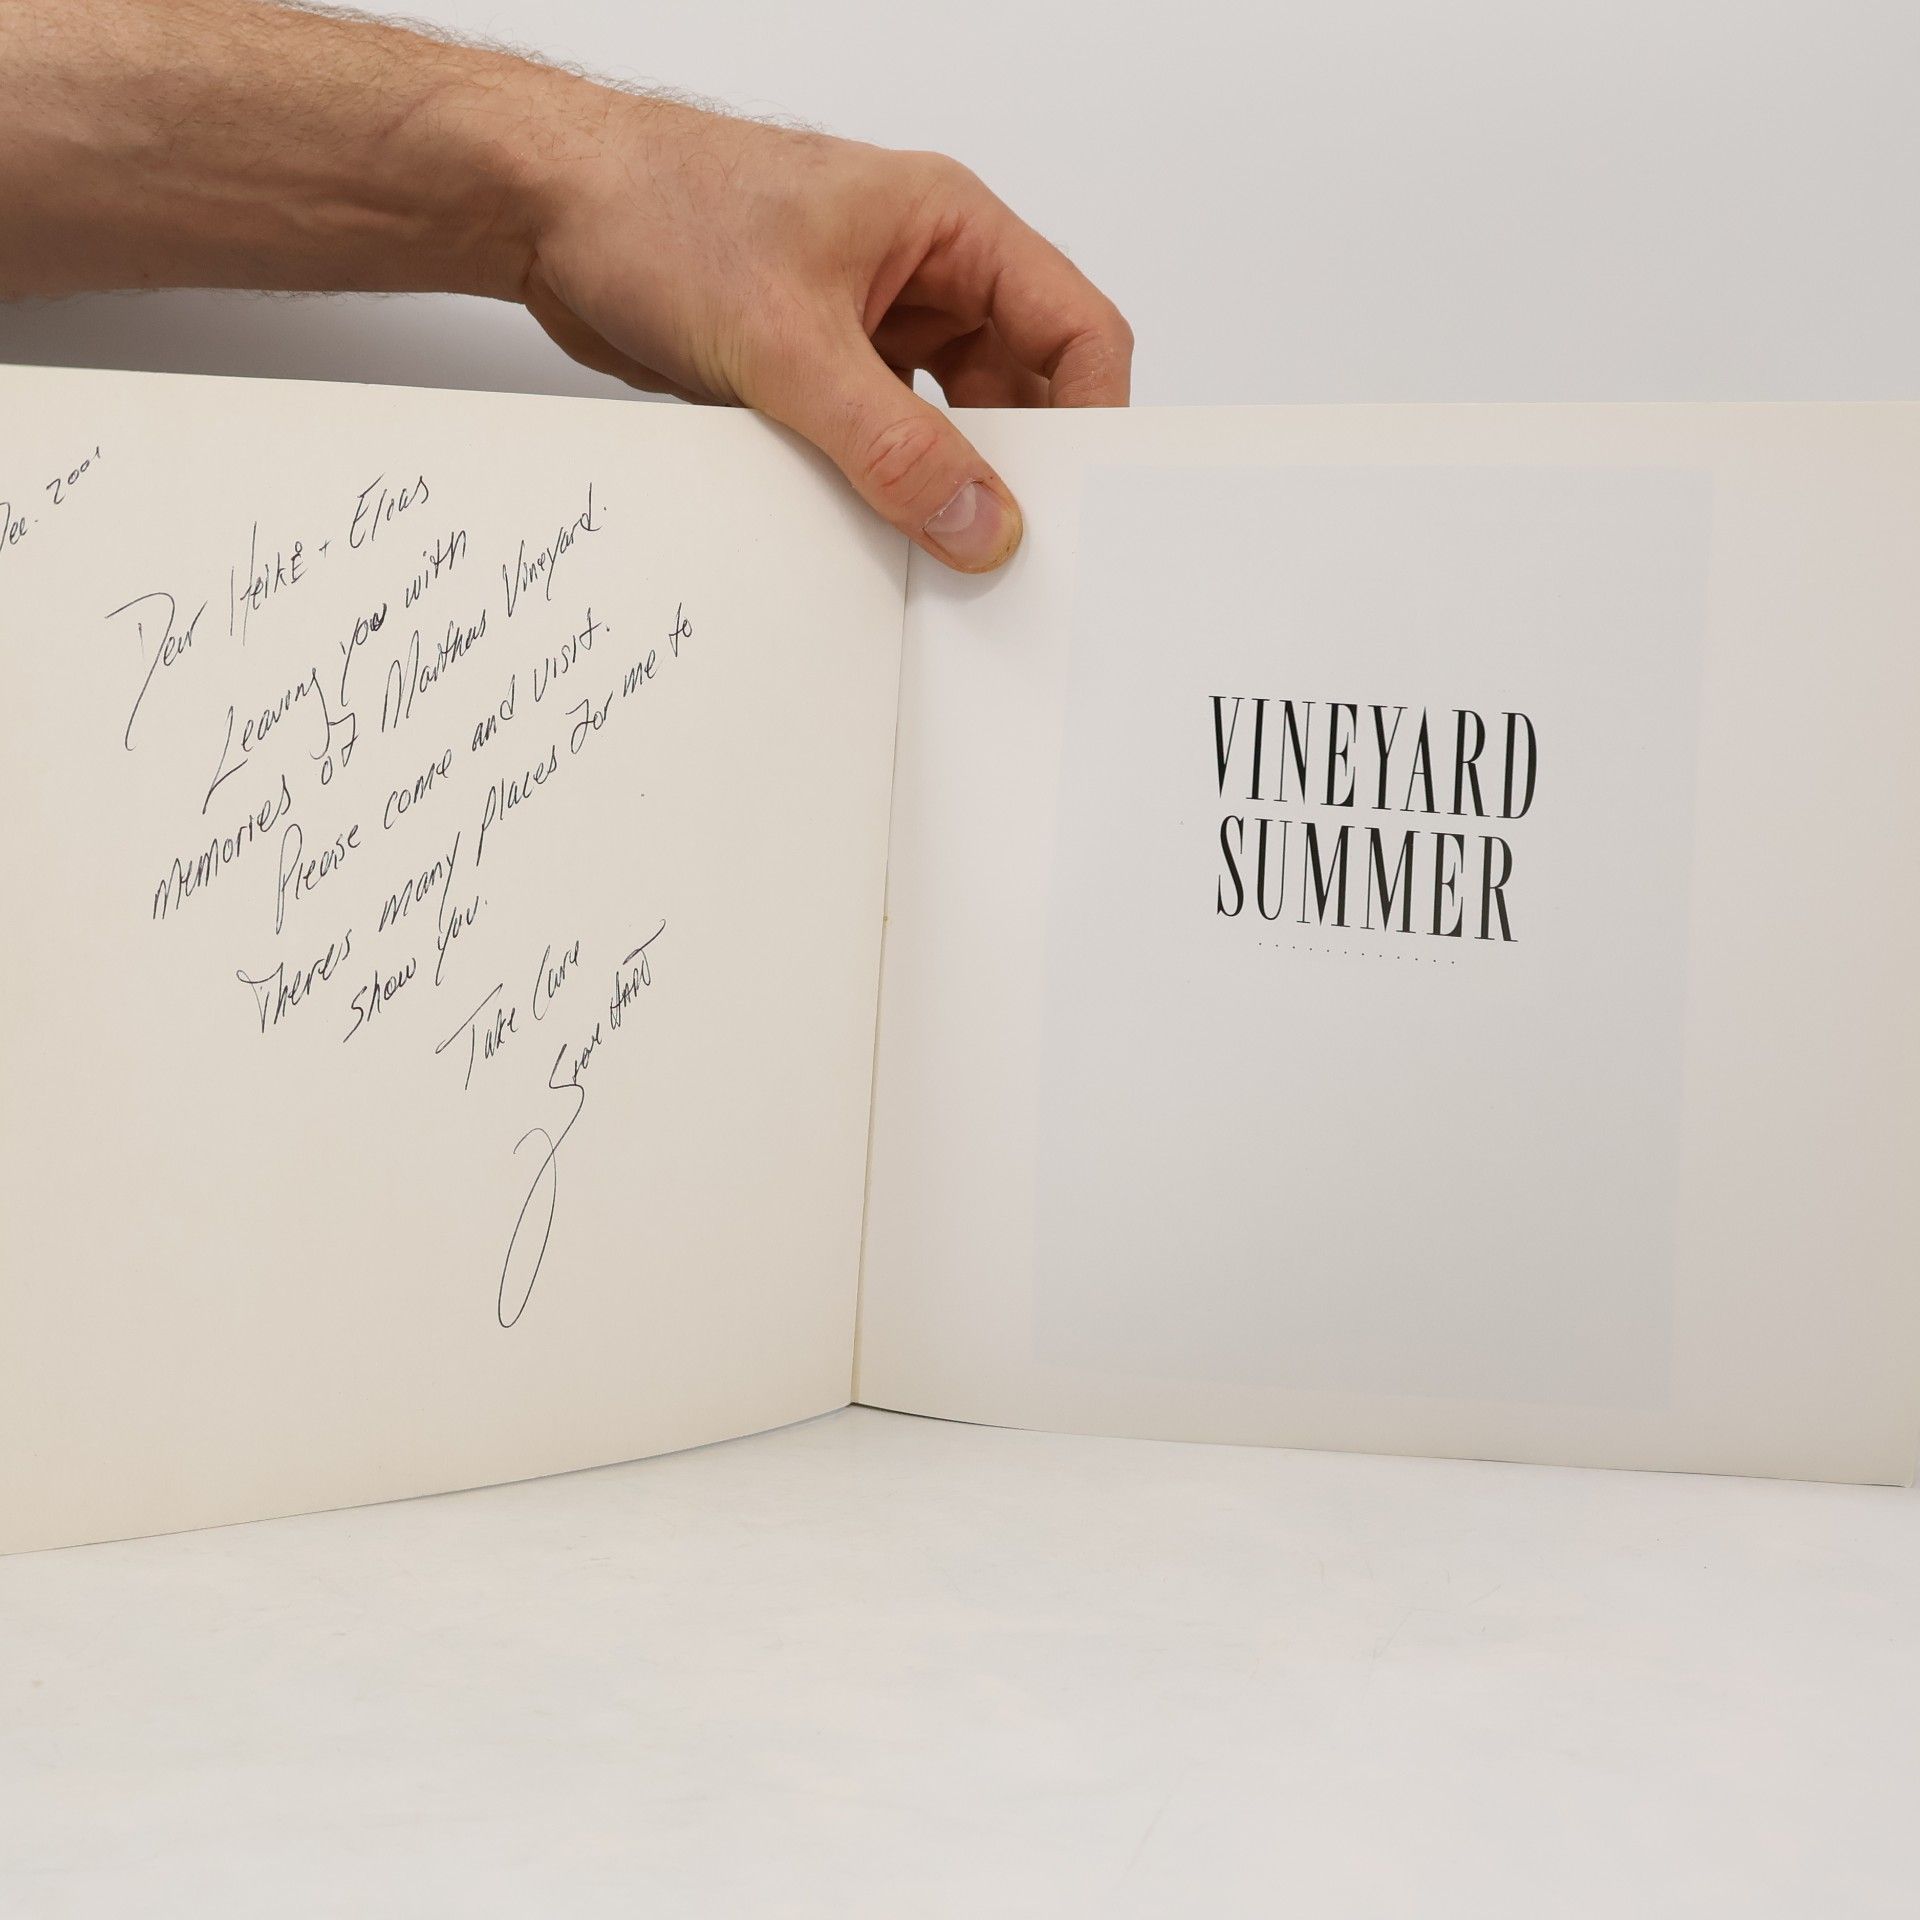 Dec. 2001
Dear Heike + Elias
Leaving you with
memories of Marthas Vineyard.
Please come and visit.
Theres many places for me to
show you.
Take Care
HART
VINEYARD
SUMMER